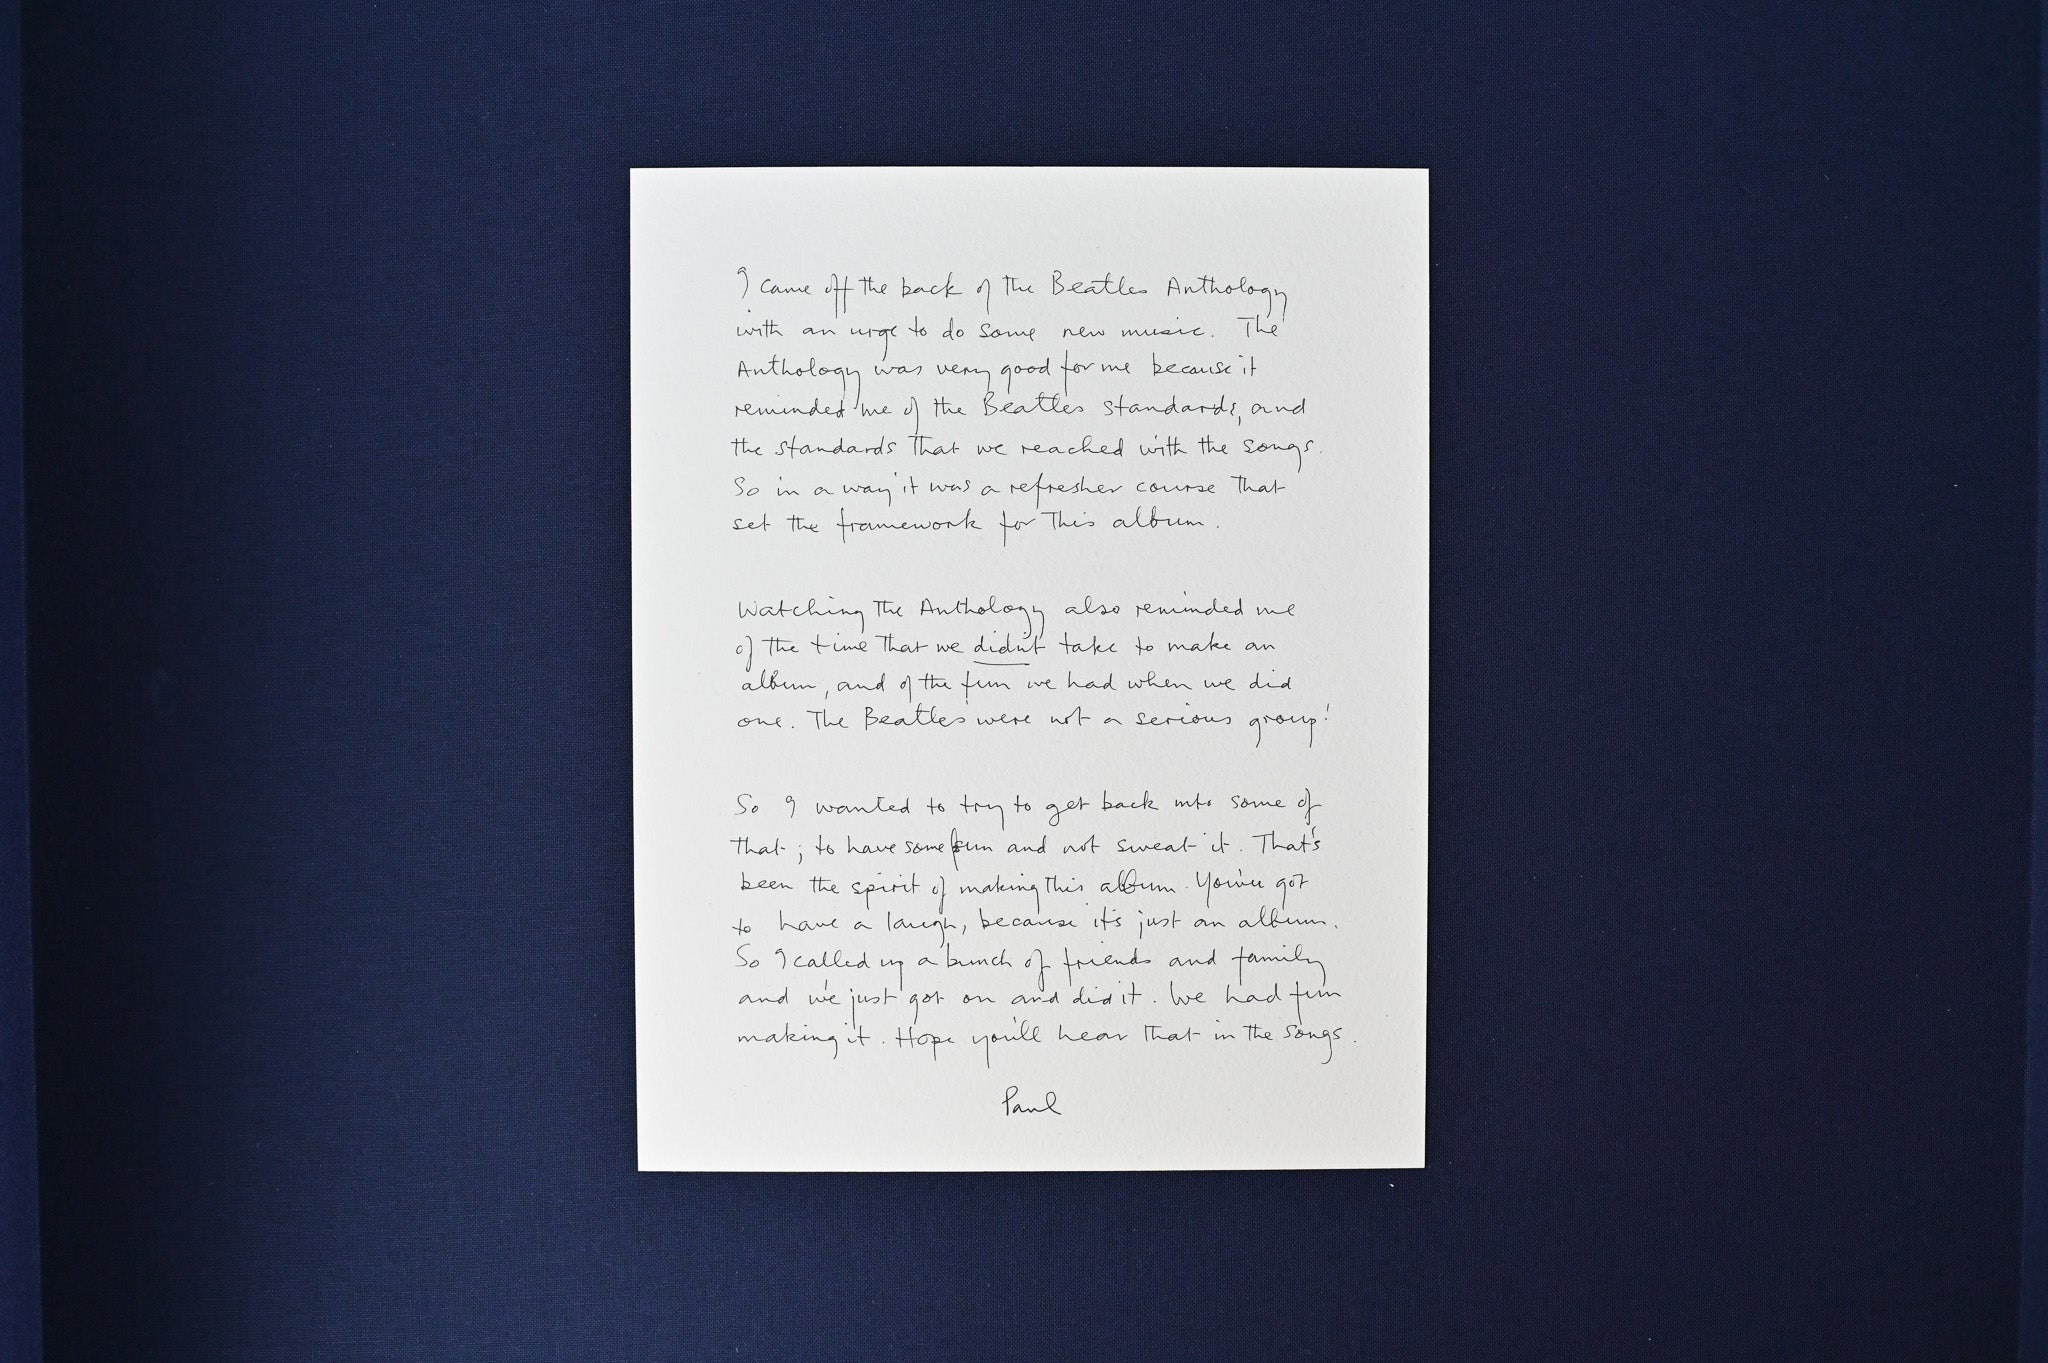 I came off the back of the Beatles Anthology
with an urge to do some new music. The
Anthology was very good for me because it
reminded me of the Beatles standards, and
the standards that we reached with the songs.
So in a way it was a refresher course that
set the framework for this album.
Watching the Anthology also reminded me
of the time that we didn't take to make an
album, and of the fun we had when we did
one. The Beatles were not a serious group!
So I wanted to try to get back into some of
that; to have some fun and not sweat it. That's
been the spirit of making this album. You've got
to have a laugh, because it's just an album.
So I called up a bunch of friends and family
and we just got on and did it. We had fun
making it. Hope you'll hear that in the songs.
Paul